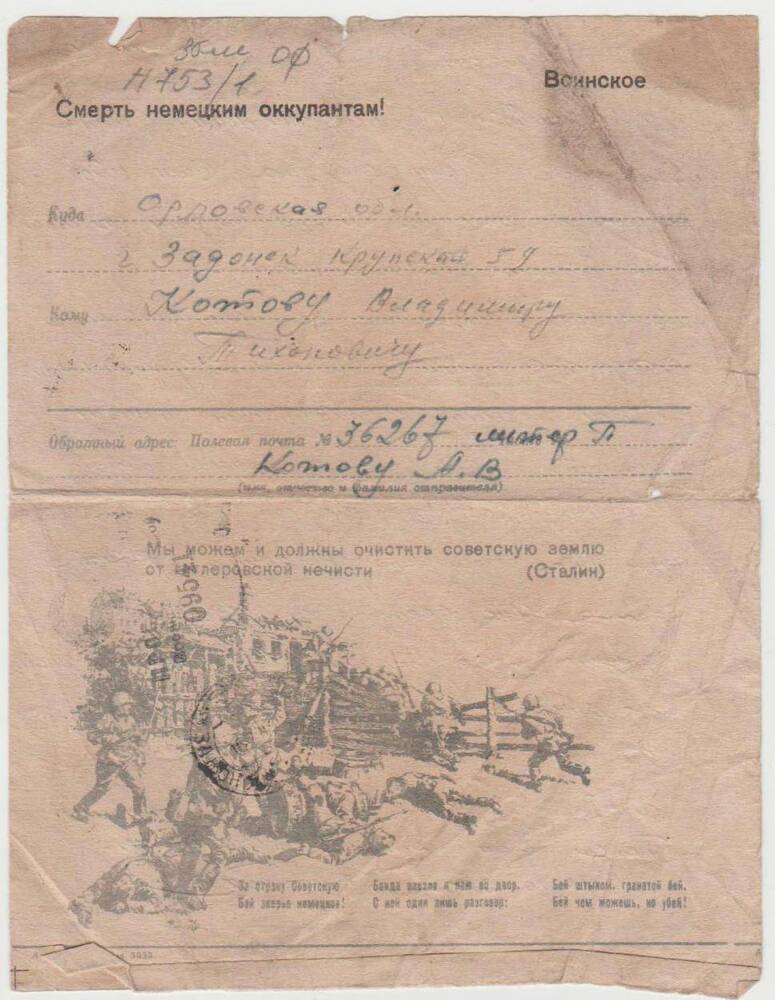 Н753/1 ОФ
Воинское
Смерть немецким оккупантам!
Куда Орловская обл.
г. Задонск Крупской 59
Кому Котову Владимиру
Тихоновичу
Обратный адрес: Полевая почта № 36267 литер П
Котову А.В
(имя, отчество и фамилия отправителя)
Мы можем и должны очистить советскую землю
от гитлеровской нечисти (Сталин)
За страну Советскую Банда влезла к нам во двор. Бей штыком, гранатой бей,
Бей зверье немецкое! С ней один лишь разговор: Бей чем можешь, но убей!